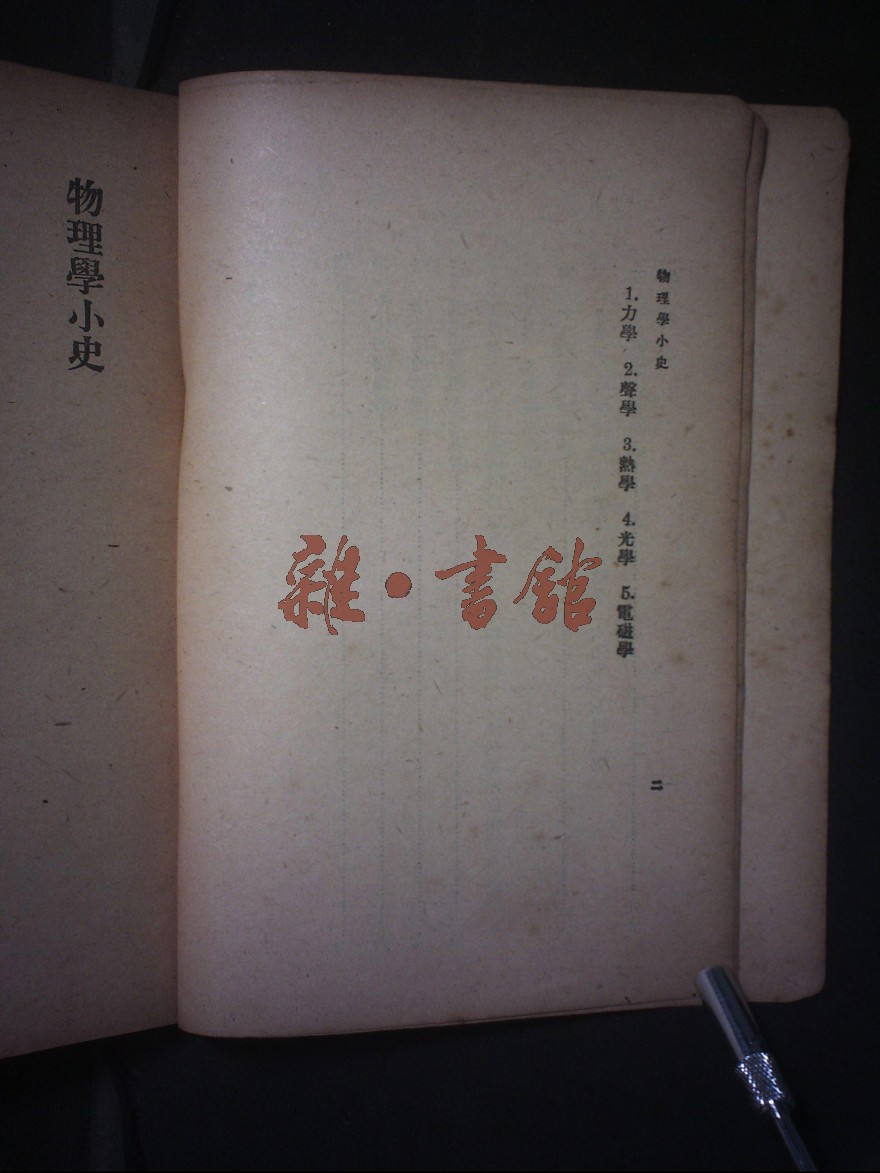 物理學小史
1.力學 2.聲學 3.熱學 4.光學 5.電磁學
二
物理學小史
雜·書館